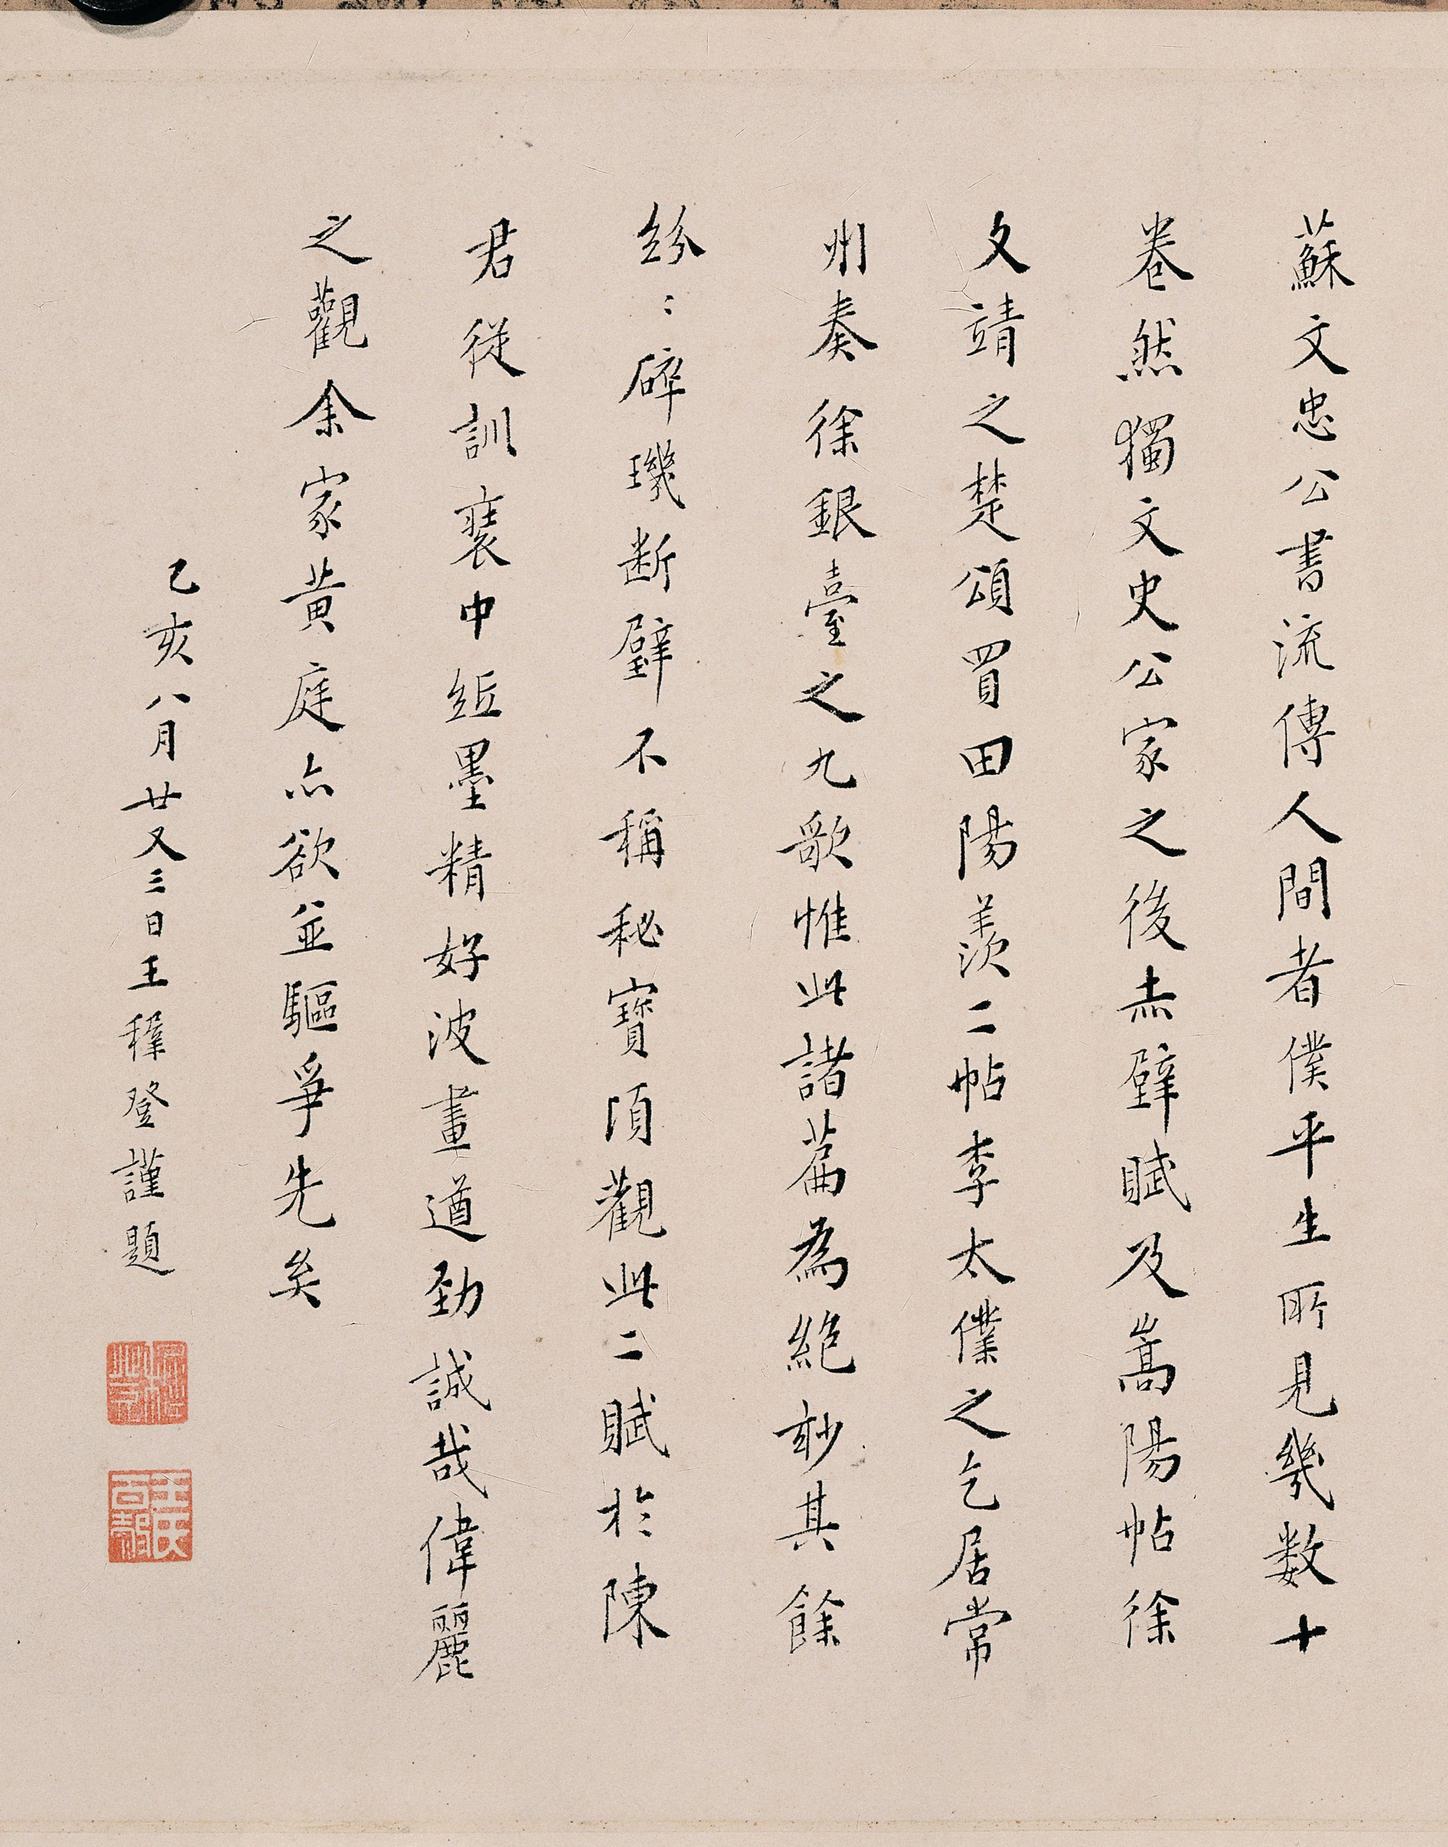 蘇文忠公書流傳人間者僕平生所見幾數十
卷然獨文史公家之後赤壁賦及嵩陽帖徐
文靖之楚頌買田陽羨二帖李太僕之乞居常
州奏徐銀臺之九歌惟此諸篇為絕妙其餘
紛〻碎璣斷璧不稱秘寶頃觀此二賦於陳
君從訓裘中紙墨精好波畫遒勁誠哉偉麗
之觀余家黃庭亦欲並驅爭先矣
乙亥八月廿又三日王穉登謹題
王氏百穀